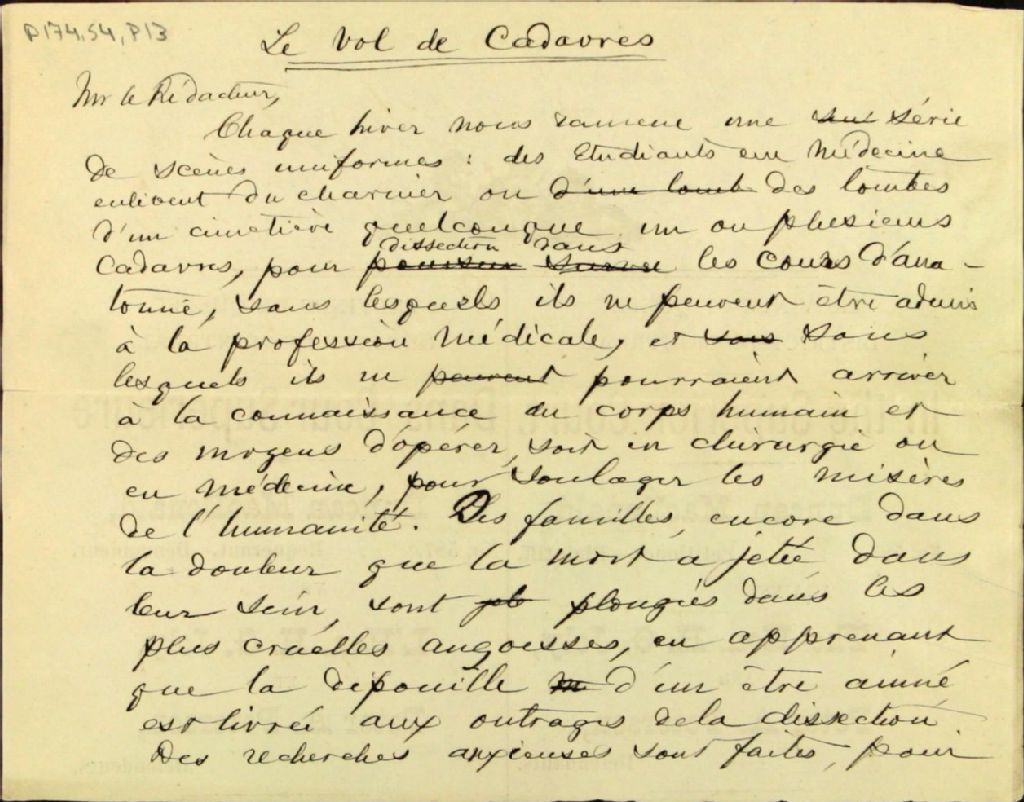 P174,S4,P13
Le Vol de Cadavres
Mr le Rédacteur,
Chaque hiver nous ramene une série
de scènes uniformes : des Etudiants en Médecine
enlèvent du charnier ou d'une tomb des tombes
d'un cimetière quelconque un ou plusieurs
dissection dans
Cadavres, pour poursuivre les cours d'ana-
tomie, sans lesquels ils ne peuvent être admis
à la profession médicale, et sans sans
lesquels ils ne peuvent pourraient arriver
à la connaissance du corps humain et
des moyens d'opérer, soit en chirurgie ou
en médecine, pour soulager les misères
de l'humanité. Des familles encore dans
la douleur que la mort a jetée dans
leur sein, sont plongées dans les
plus cruelles angoisses, en apprenant
que la dépouille d'un être aimé
est livrée aux outrages de la dissection
Des recherches anxieuses sont faites, pour